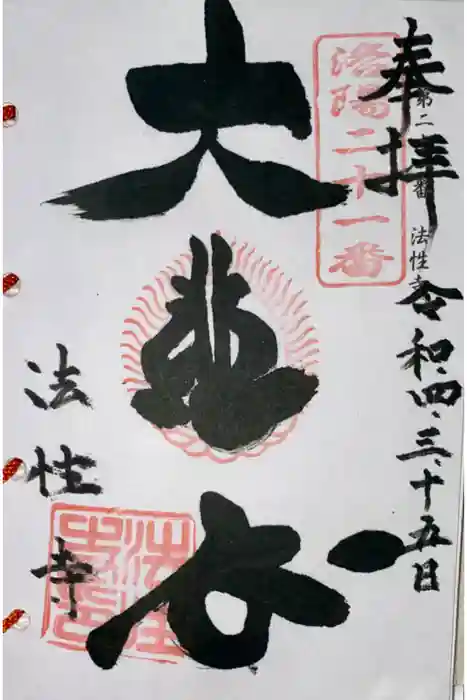 奉拝
第二 番 法性寺
令和四、三、十五日
洛陽二十一番
大悲
法性寺